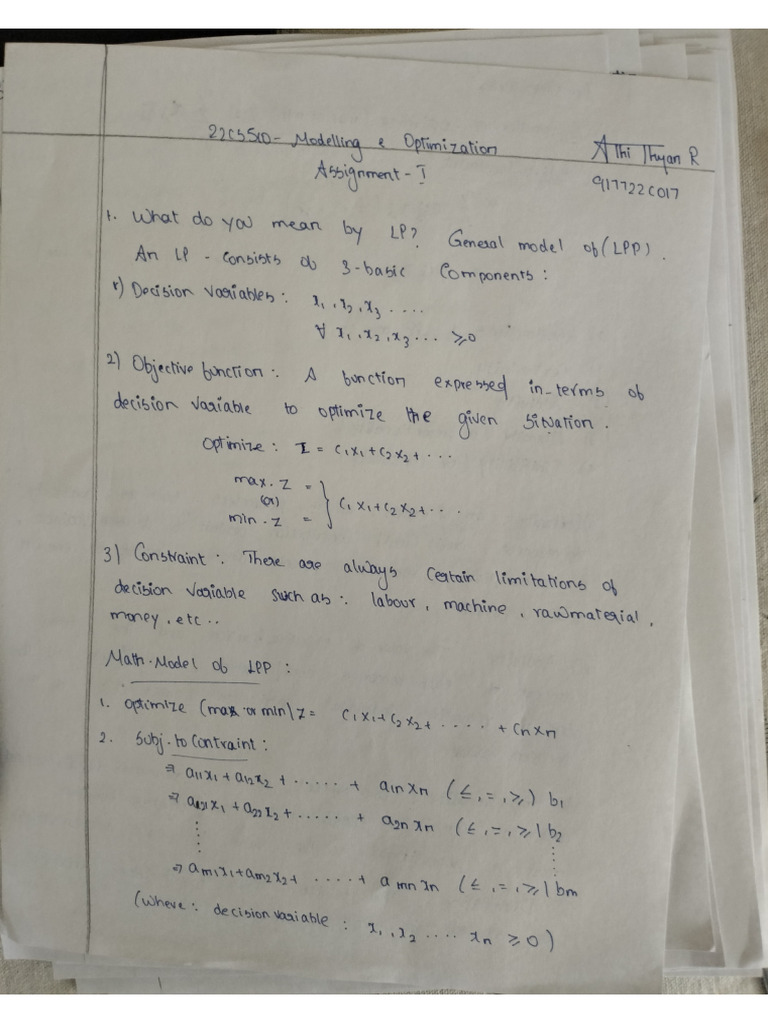 22CS510 - Modelling & Optimization
Athi Thyan R
Assignment - I
917722C017
1. What do you mean by LP? General model of (LPP).
An LP - consists of 3-basic components:
1) Decision variables: x₁, x₂, x₃ ....
∀ x₁, x₂, x₃ ... ≥ 0
2) Objective function: A function expressed in-terms of
decision variable to optimize the given situation.
Optimize: Z = c₁x₁ + c₂x₂ + ...
max. Z =
(or) } c₁x₁ + c₂x₂ + ...
min. Z =
3) Constraint: There are always certain limitations of
decision variable such as: labour, machine, rawmaterial,
money, etc..
Math. Model of LPP:
1. Optimize (max or min) Z = c₁x₁ + c₂x₂ + ..... + cₙxₙ
2. Subj. to Contraint:
⇒ a₁₁x₁ + a₁₂x₂ + ..... + a₁ₙxₙ (≤, =, ≥) b₁
⇒ a₂₁x₁ + a₂₂x₂ + ..... + a₂ₙxₙ (≤, =, ≥) b₂
⇒ aₘ₁x₁ + aₘ₂x₂ + ..... + aₘₙxₙ (≤, =, ≥) bₘ
(Where: decision variable: x₁, x₂ .... xₙ ≥ 0)